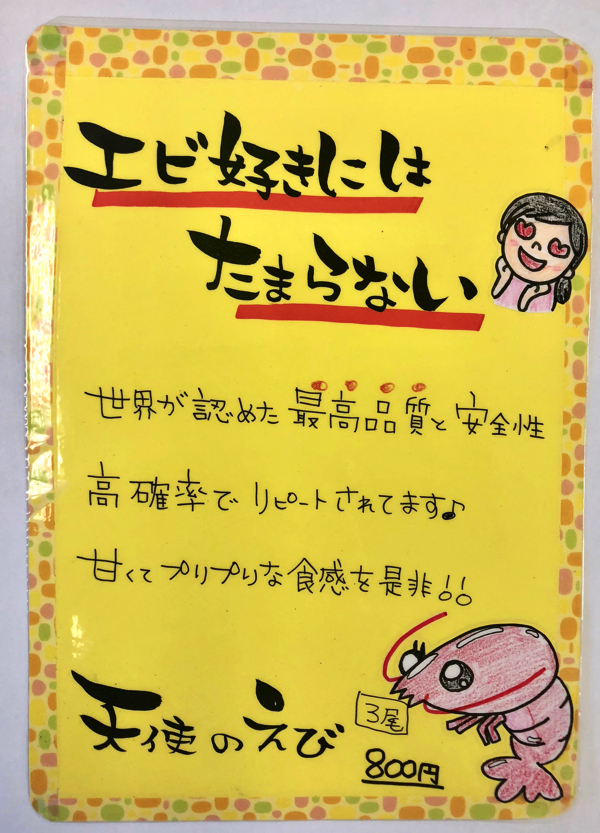 エビ好きには
たまらない
世界が認めた最高品質と安全性
高確率でリピートされてます♪
甘くてプリプリな食感を是非!!
天使のえび
3尾
800円